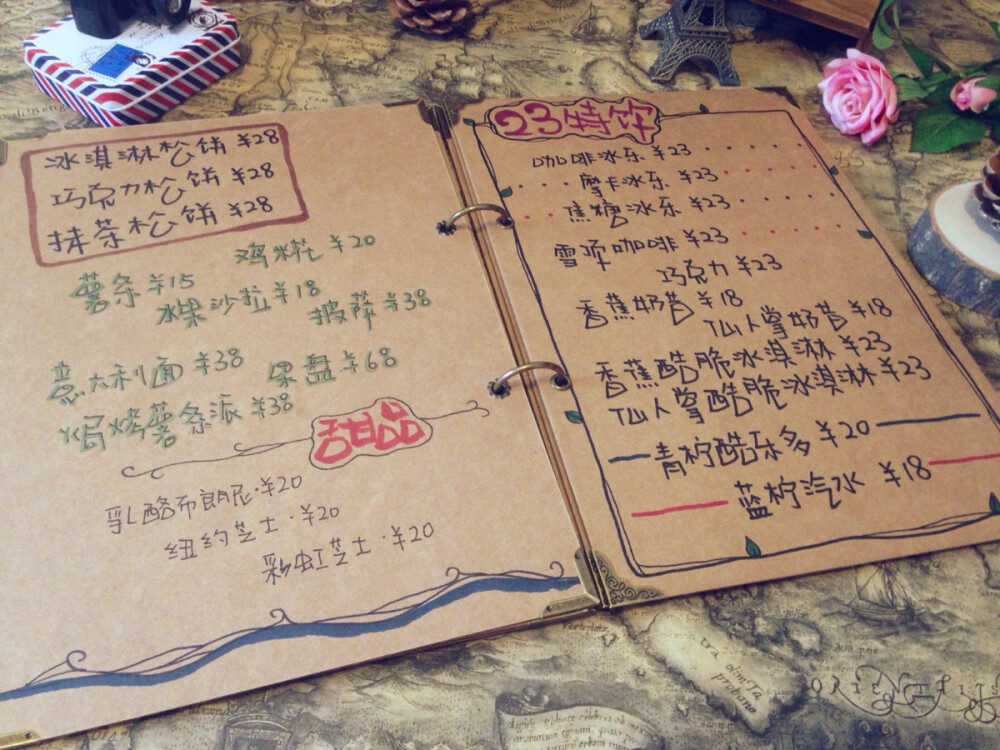 冰淇淋松饼 ¥28
巧克力松饼 ¥28
抹茶松饼 ¥28
鸡米花 ¥20
薯条 ¥15
水果沙拉 ¥18
披萨 ¥38
意大利面 ¥38
果盘 ¥68
焗烤薯条派 ¥38
甜品
乳酪布朗尼·¥20
纽约芝士·¥20
彩虹芝士·¥20
23特饮
咖啡冰乐 ¥23
摩卡冰乐 ¥23
焦糖冰乐 ¥23
雪顶咖啡 ¥23
巧克力 ¥23
香蕉奶昔 ¥18
仙人掌奶昔 ¥18
香蕉酷脆冰淇淋 ¥23
仙人掌酷脆冰淇淋 ¥23
青柠酷乐多 ¥20
蓝柠汽水 ¥18